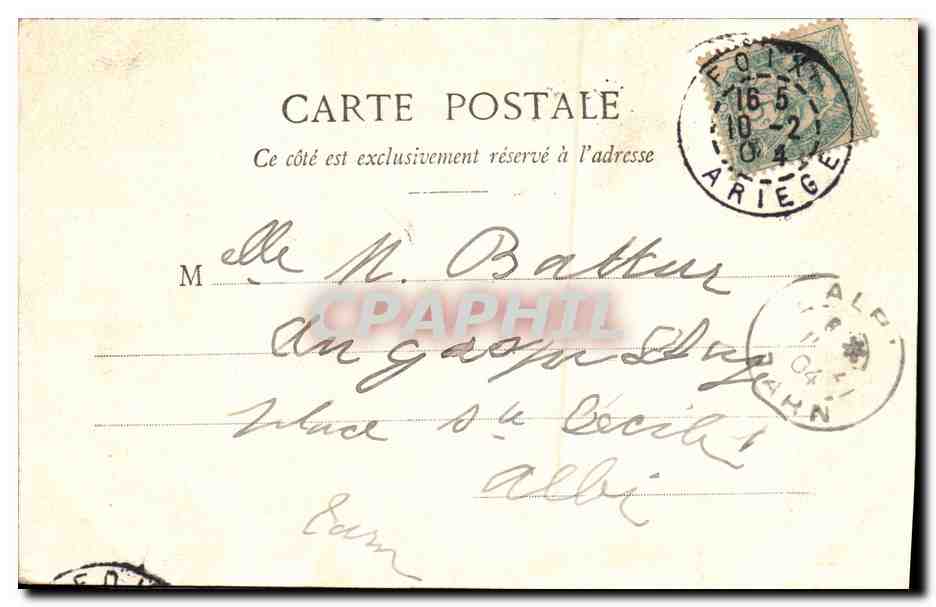 CARTE POSTALE
Ce côté est exclusivement réservé à l'adresse
FOIX
16 5
10 -2
04
ARIEGE
Melle M. Battut
CPAPHIL
place Ste Cécile
Albi
Tarn
ALBI
11
04
TARN
FOI